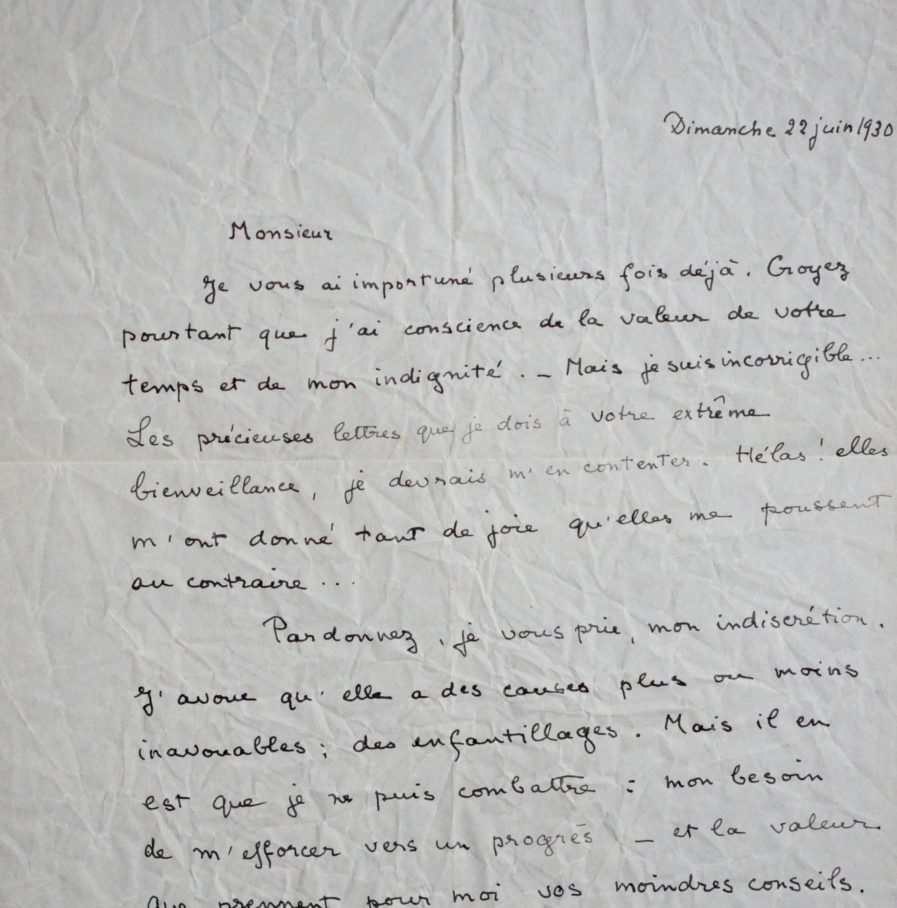 Dimanche 22 juin 1930
Monsieur
Je vous ai importuné plusieurs fois déjà. Croyez
pourtant que j'ai conscience de la valeur de votre
temps et de mon indignité. – Mais je suis incorrigible...
Les précieuses lettres que je dois à votre extrême
bienveillance, je devrais m'en contenter. Hélas! elles
m'ont donné tant de joie qu'elles me poussent
au contraire...
Pardonnez, je vous prie, mon indiscrétion.
J'avoue qu'elle a des causes plus ou moins
inavouables; des enfantillages. Mais il en
est que je ne puis combattre : mon besoin
de m'efforcer vers un progrès – et la valeur
que prennent pour moi vos moindres conseils.